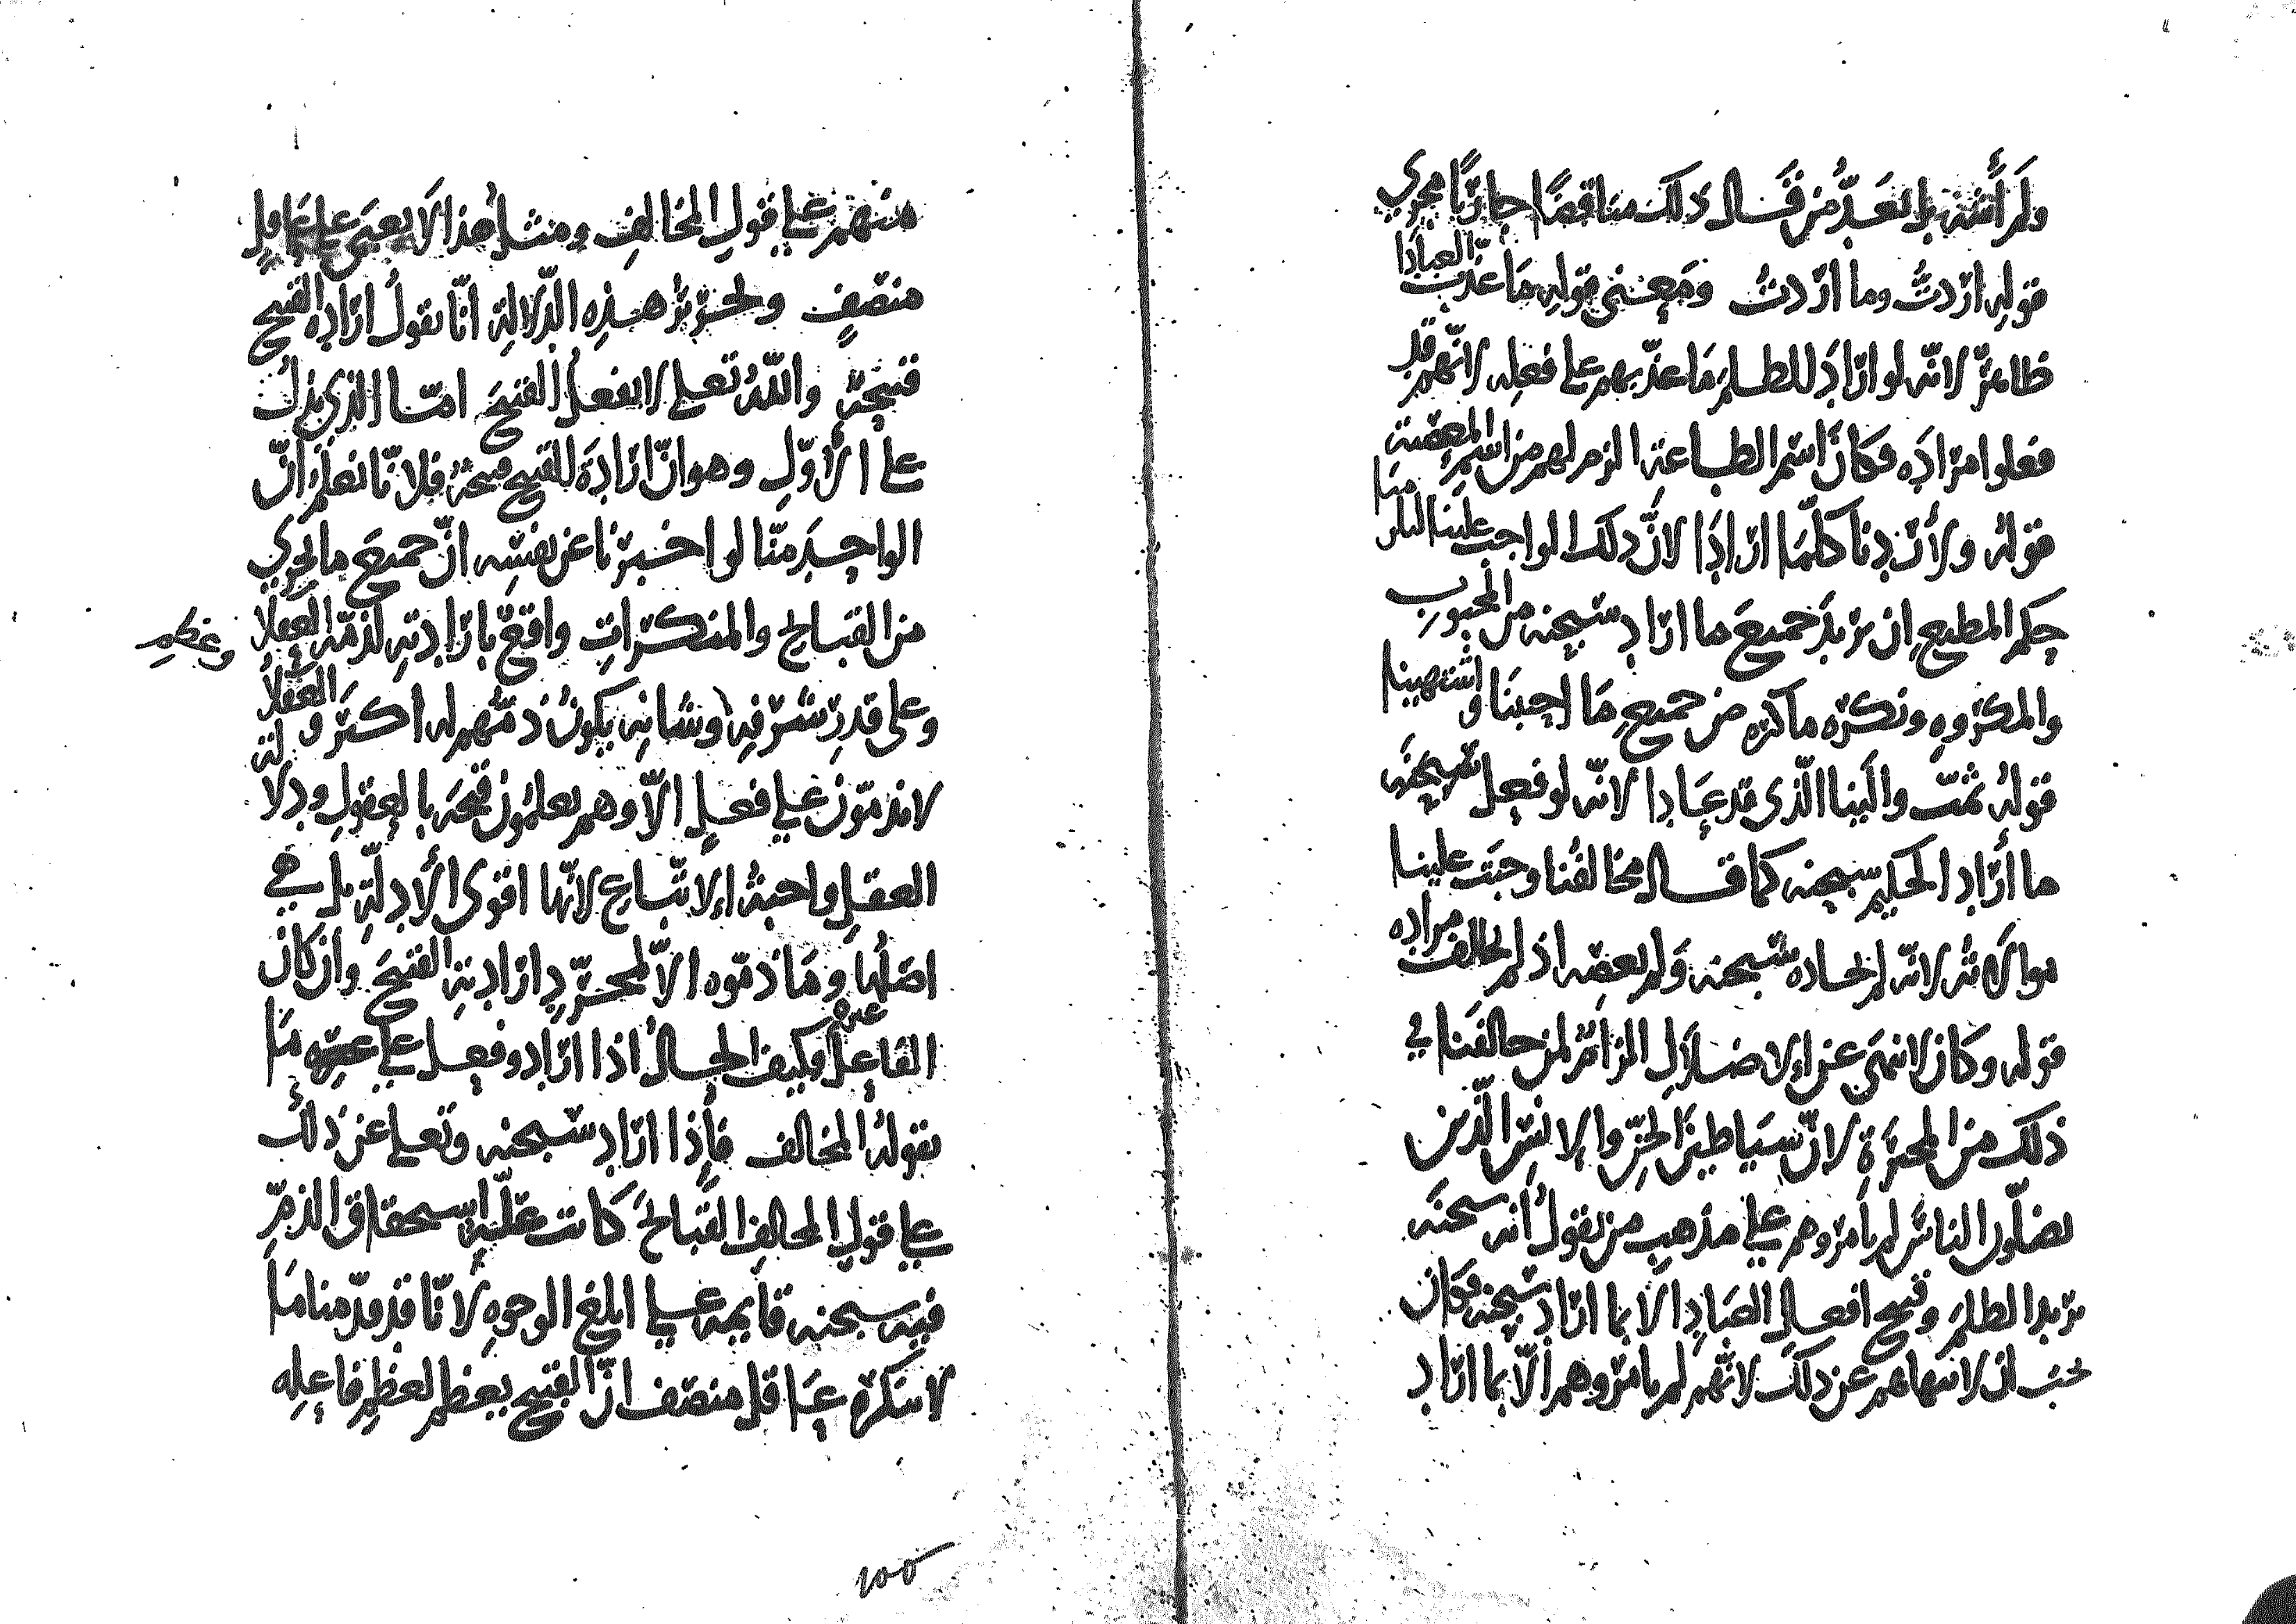 ولم أشنه بل بعد من قال ذلك مناقضا جاريا مجرى
قوله اردت وما اردت ومعنى قوله ما عذب العبادا
ظاهر لانه لو اراد للظلم ما عذبهم على فعله لانهم قد
فعلوا مراده فكان اسم الطاعة الزم لهم من اسم المعصية
قوله ولأردنا كلما ارادا لان ذلك الواجب علينا اللازم منا
حكم المطيع ان يريد جميع ما اراد سبحنه من المحبوب
والمكروه ونكره ما كره من جميع ما احببنا واشتهينا
قوله ثمت والينا الذي قد عادا لانه لو فعل سبحنه
ما أراد الحكيم سبحنه كما قال مخالفنا وجبت علينا
موالاته لانه لم يحاده سبحنه ولم يعصه اذ لم يخالف مراده
قوله وكان لا نهى عن الاضلال المراد لمن خالفنا في
ذلك من المجبرة لان شياطين الجن والانس الذين
يضلون الناس لم يأمروهم على مذهب من يقول أنه سبحنه
يريد الظلم وقبيح افعال العباد الا بما اراد سبحنه فكان
يجب ان لا ننهاهم عن ذلك لانهم لم يامروهم الا بما اراد
منهم على قول المخالف ومثل هذا لا يعمى على عاقل
منصف وتحرير هذه الدلالة انا نقول ارادة القبيح
قبيحة والله تعلى لا يفعل القبيح اما الذي يدل
على الأول وهو ان ارادة القبيح قبيحة فلانا نعلم ان
الواحد منا لو اخبرنا عن نفسه ان جميع ما يجري
من القبائح والمنكرات واقع بارادته لذمه العقلا
وعظم
وعلى قدر شرفه وشانه يكون ذمهم له اكثر و العقلا
لا يذمون على فعل الا وهم يعلمون قبحه بالعقول ودلالة
العقل واجبة الاتباع لانها اقوى الأدلة بل هي
اصلها وما ذموه الا لمجرد ارادته القبيح وان كان
الفاعل غيره فكيف الحال اذا اراد وفعل على ما
يقوله المخالف فإذا اراد سبحنه وتعلى عن ذلك
على قول المخالف القبائح كانت علة استحقاق الذم
فيه سبحنه قايمة على ابلغ الوجوه لانا قد قدمنا ما
لا ينكره عاقل منصف ان القبيح يعظم لعظم فاعله